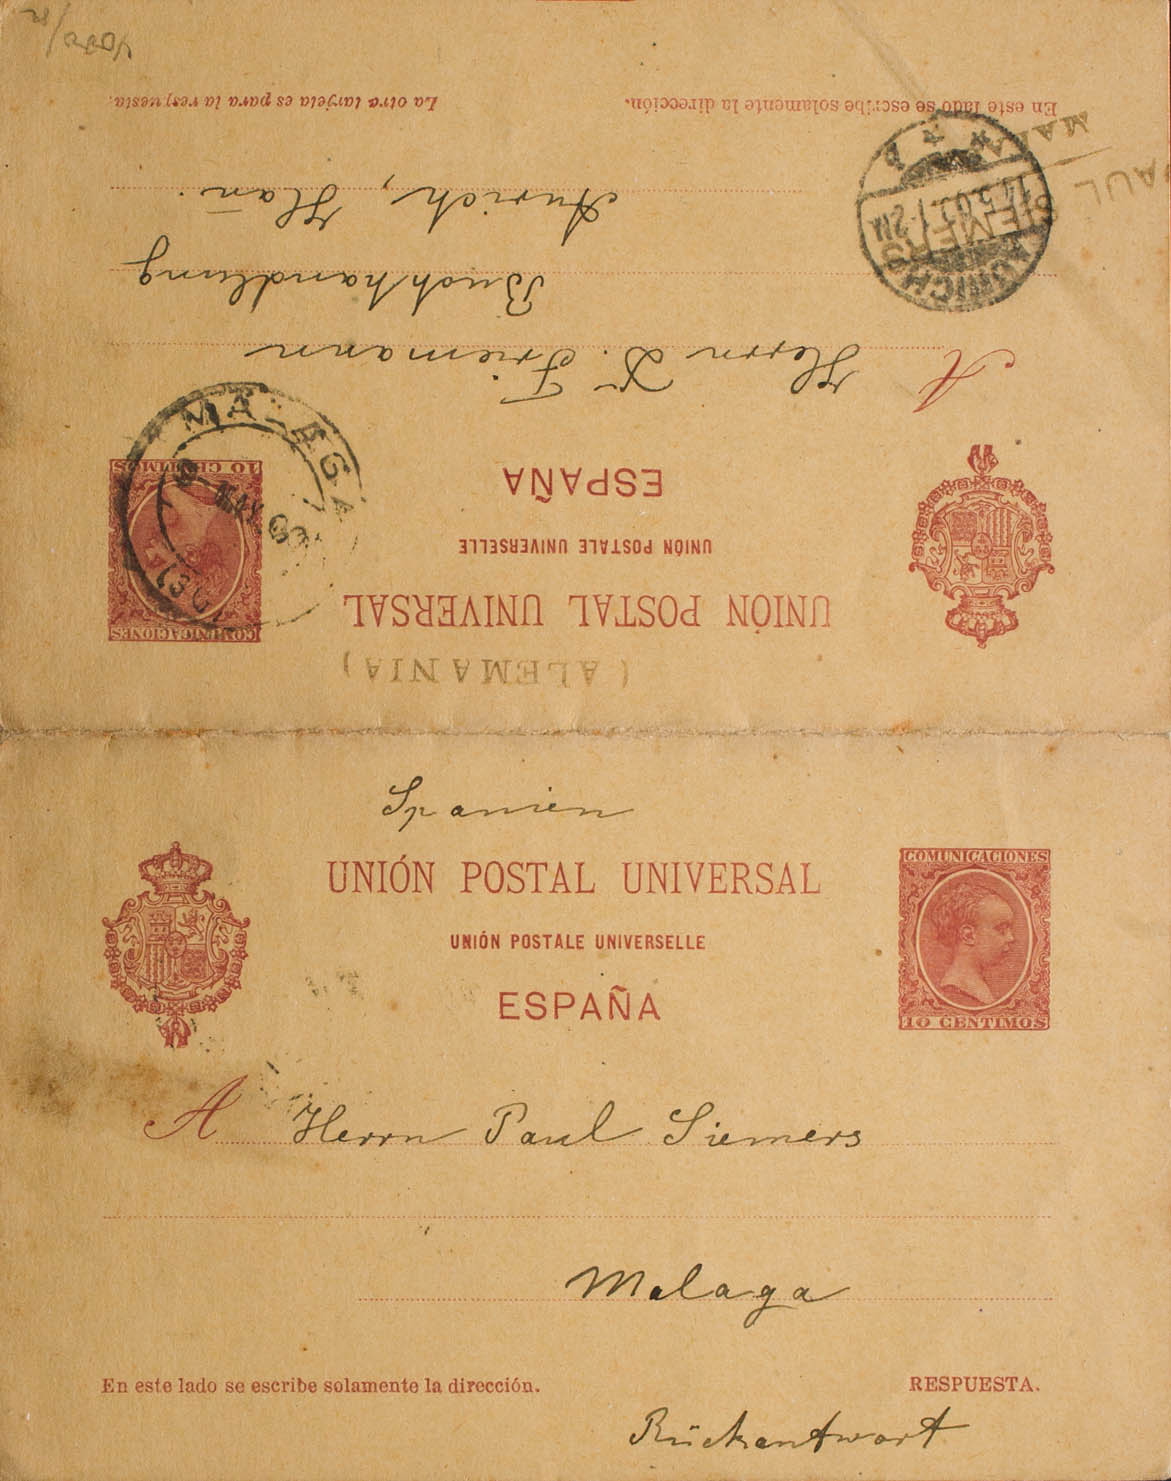 (ALEMANIA)
UNIÓN POSTAL UNIVERSAL
UNIÓN POSTALE UNIVERSELLE
ESPAÑA
COMUNICACIONES
10 CENTIMOS
MALAGA
MAY
A Herrn D. Friemann
Buchhandlung
Aurich, Han.
AURICH
PAUL SIEMERS
En este lado se escribe solamente la dirección.
La otra tarjeta es para la respuesta.
Spanien
UNIÓN POSTAL UNIVERSAL
UNIÓN POSTALE UNIVERSELLE
ESPAÑA
COMUNICACIONES
10 CENTIMOS
A Herrn Paul Siemers
Malaga
En este lado se escribe solamente la dirección.
RESPUESTA.
Rückantwort